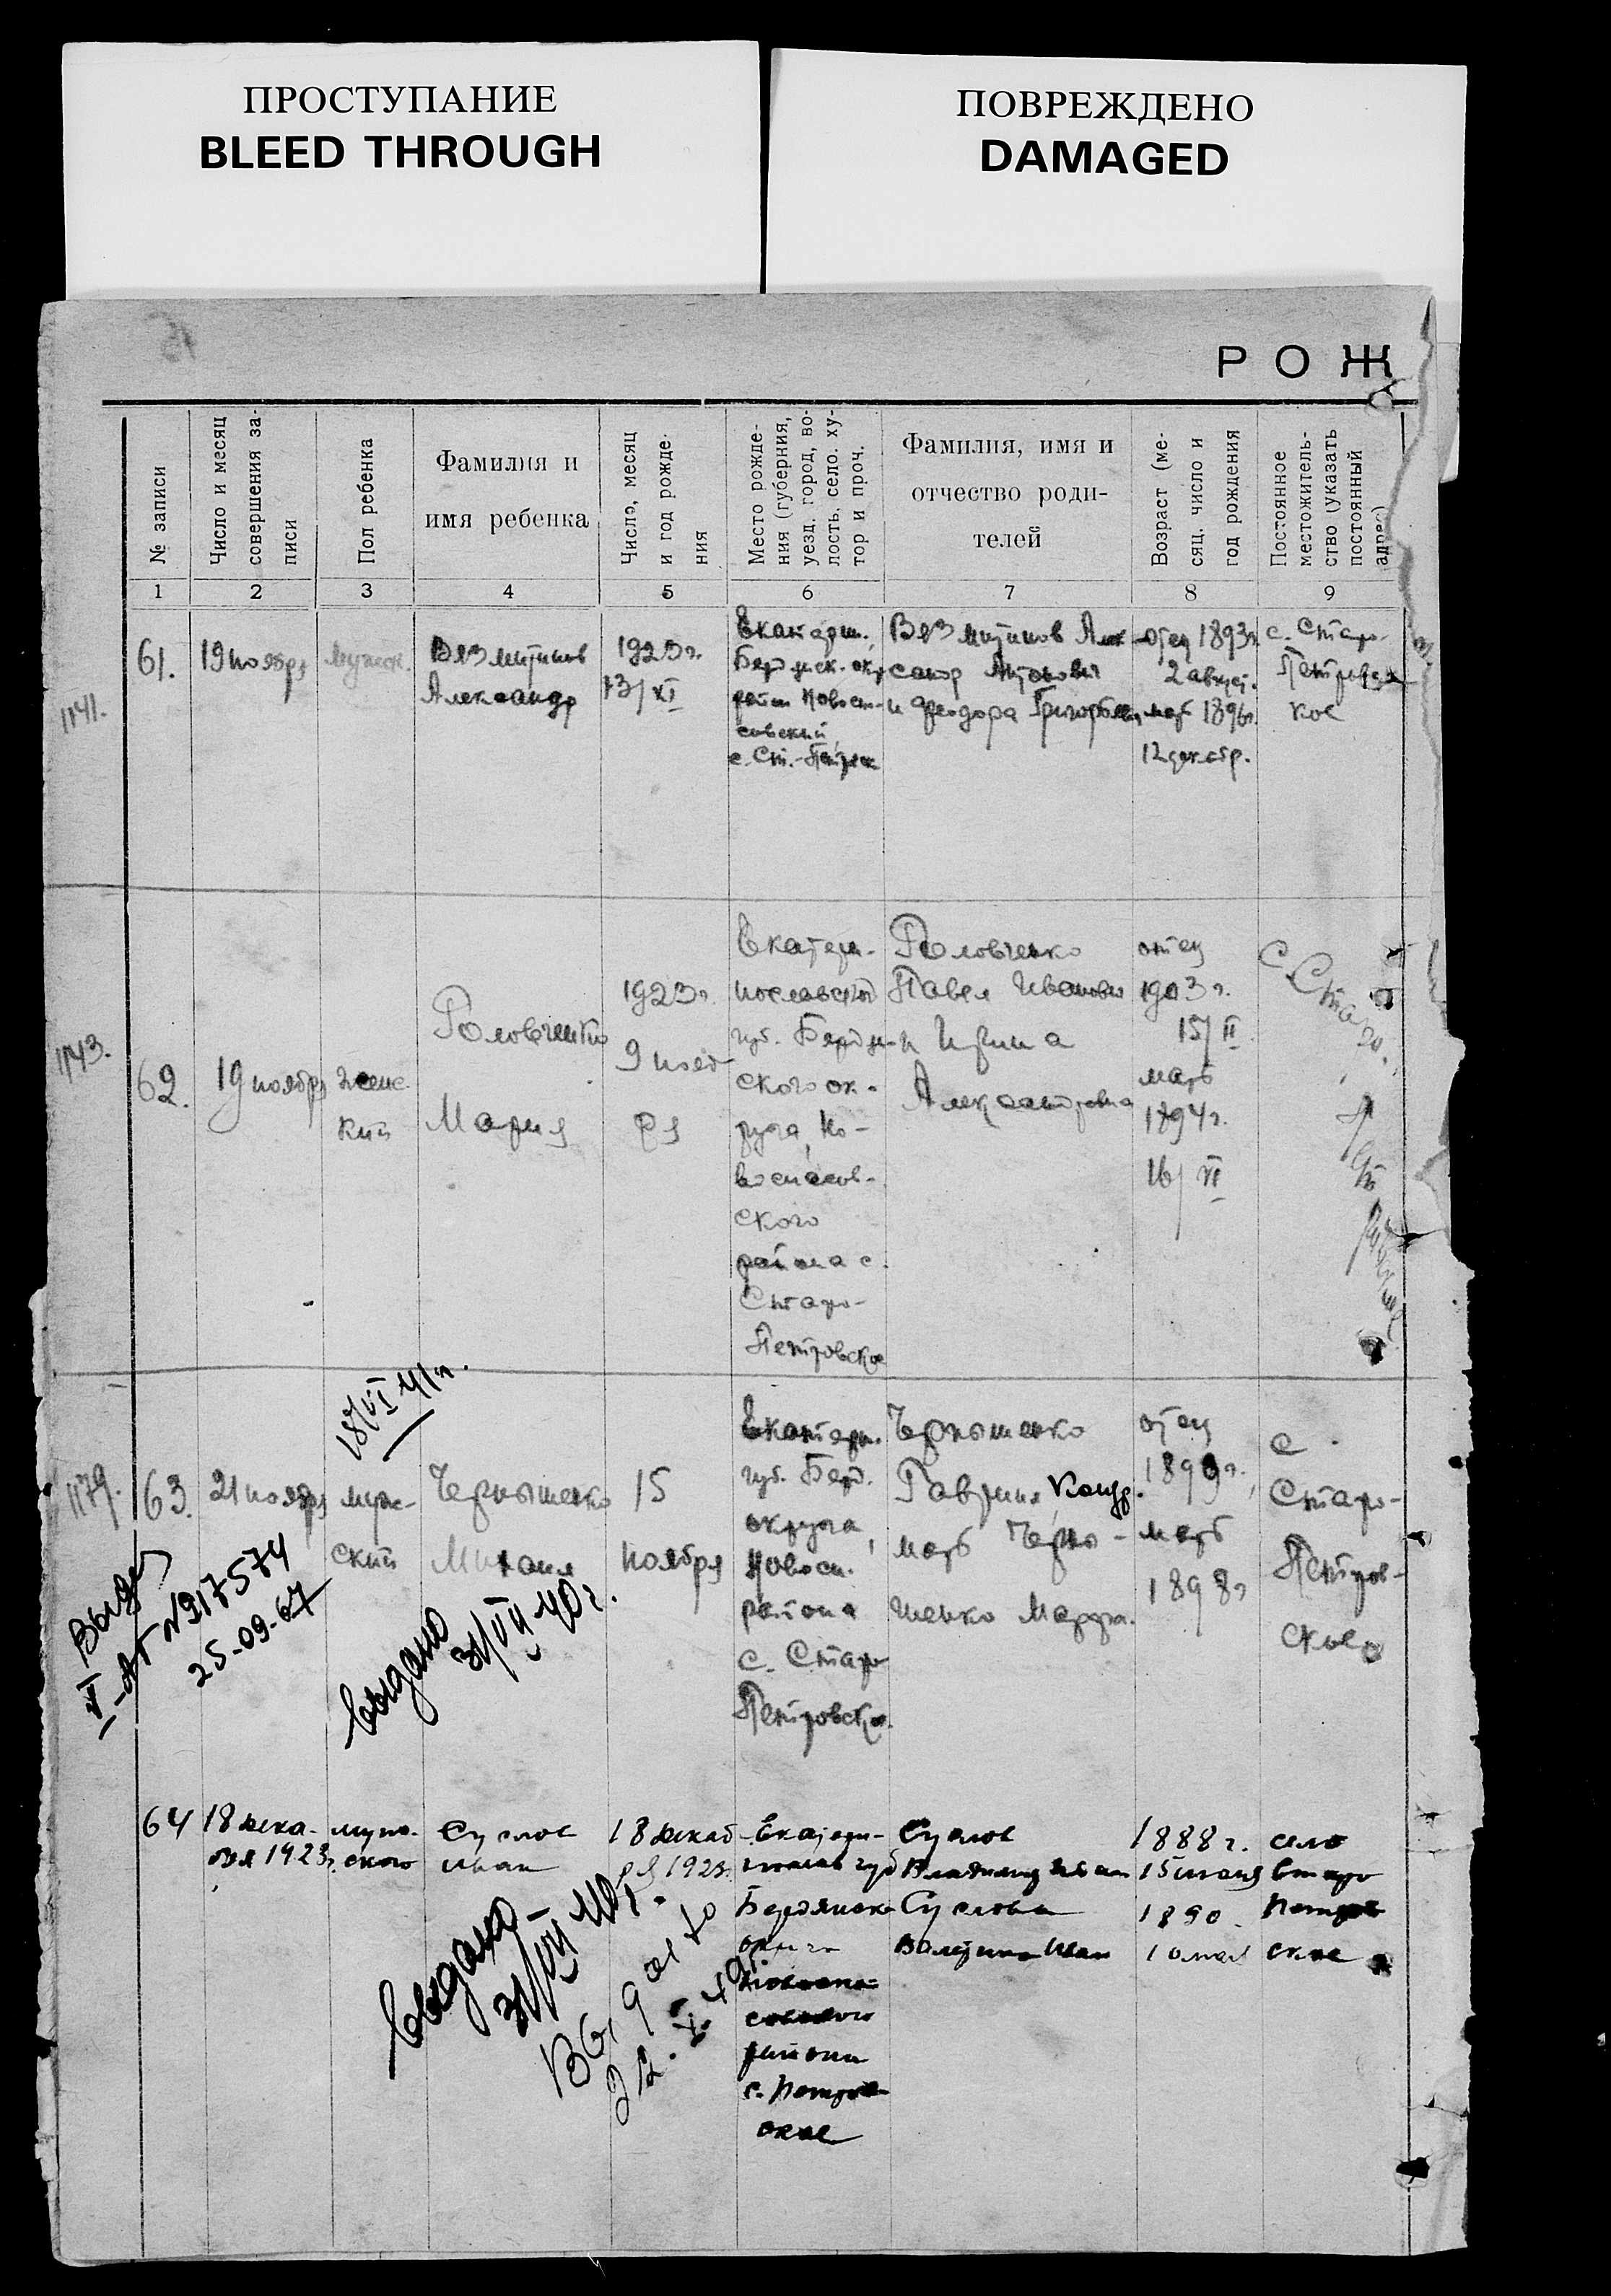 ПРОСТУПАНИЕ
BLEED THROUGH
ПОВРЕЖДЕНО
DAMAGED
РОЖ
№ записи
Число и месяц
совершения за-
писи
Пол ребенка
Фамилия и
имя ребенка
Число, месяц
и год рожде-
ния
Место рожде-
ния (губерния,
уезд, город, во-
лость, село, ху-
тор и проч.
Фамилия, имя и
отчество роди-
телей
Возраст (ме-
сяц, число и
год рождения
Постоянное
местожитель-
ство (указать
постоянный
адрес)
1 2 3 4 5 6 7 8 9
1141.
61.
19 ноября
мужск.
Александр
1923 г.
13/XI
Екатерин.
Бердянск. окр
с. Ст.-Петровск
и Феодора
отец 1893 г.
2 август.
мать 1896 г.
12 декабр.
с. Старо-
Петровс
кое
1143.
62.
19 ноября
женс-
кий
Головченко
Мария
1923 г.
9 нояб-
ря
Екатери-
нославской
губ. Бердян-
ского ок-
руга, Но-
воспасов-
ского
района с.
Старо-
Петровское
Головченко
Павел Иванович
и Ирина
Александровна
отец
1903 г.
15/II
мать
1894 г.
16/VI
с Старо-
Петровское
18/VI 41 г.
1179.
63.
21 ноября
муж-
ский
Чернышенко
Михаил
15
ноября
Екатерин.
губ. Берд.
округа,
Новосп.
района
с. Старо
Петровско.
Чернышенко
Гавриил Кондр.
мать Черны-
шенко Марфа.
отец
1899 г.,
мать
1898 г
с.
Старо-
Петров-
ское
25-09-67
выдано
31/VII 40 г.
64
18 дека-
бря 1923 г.
муж-
ского
Суслов
Иван
18 декаб
ря 1923 г.
Екатери-
нослав губ
Бердянск
округа
Новоспа-
совского
района
с. Петров
ское
Суслов
Владимир Иван
Суслова
Иван
1888 г.
15 июля
1890.
10 мая
село
Старо
Петров
ское
выдано
31/VII 40 г.